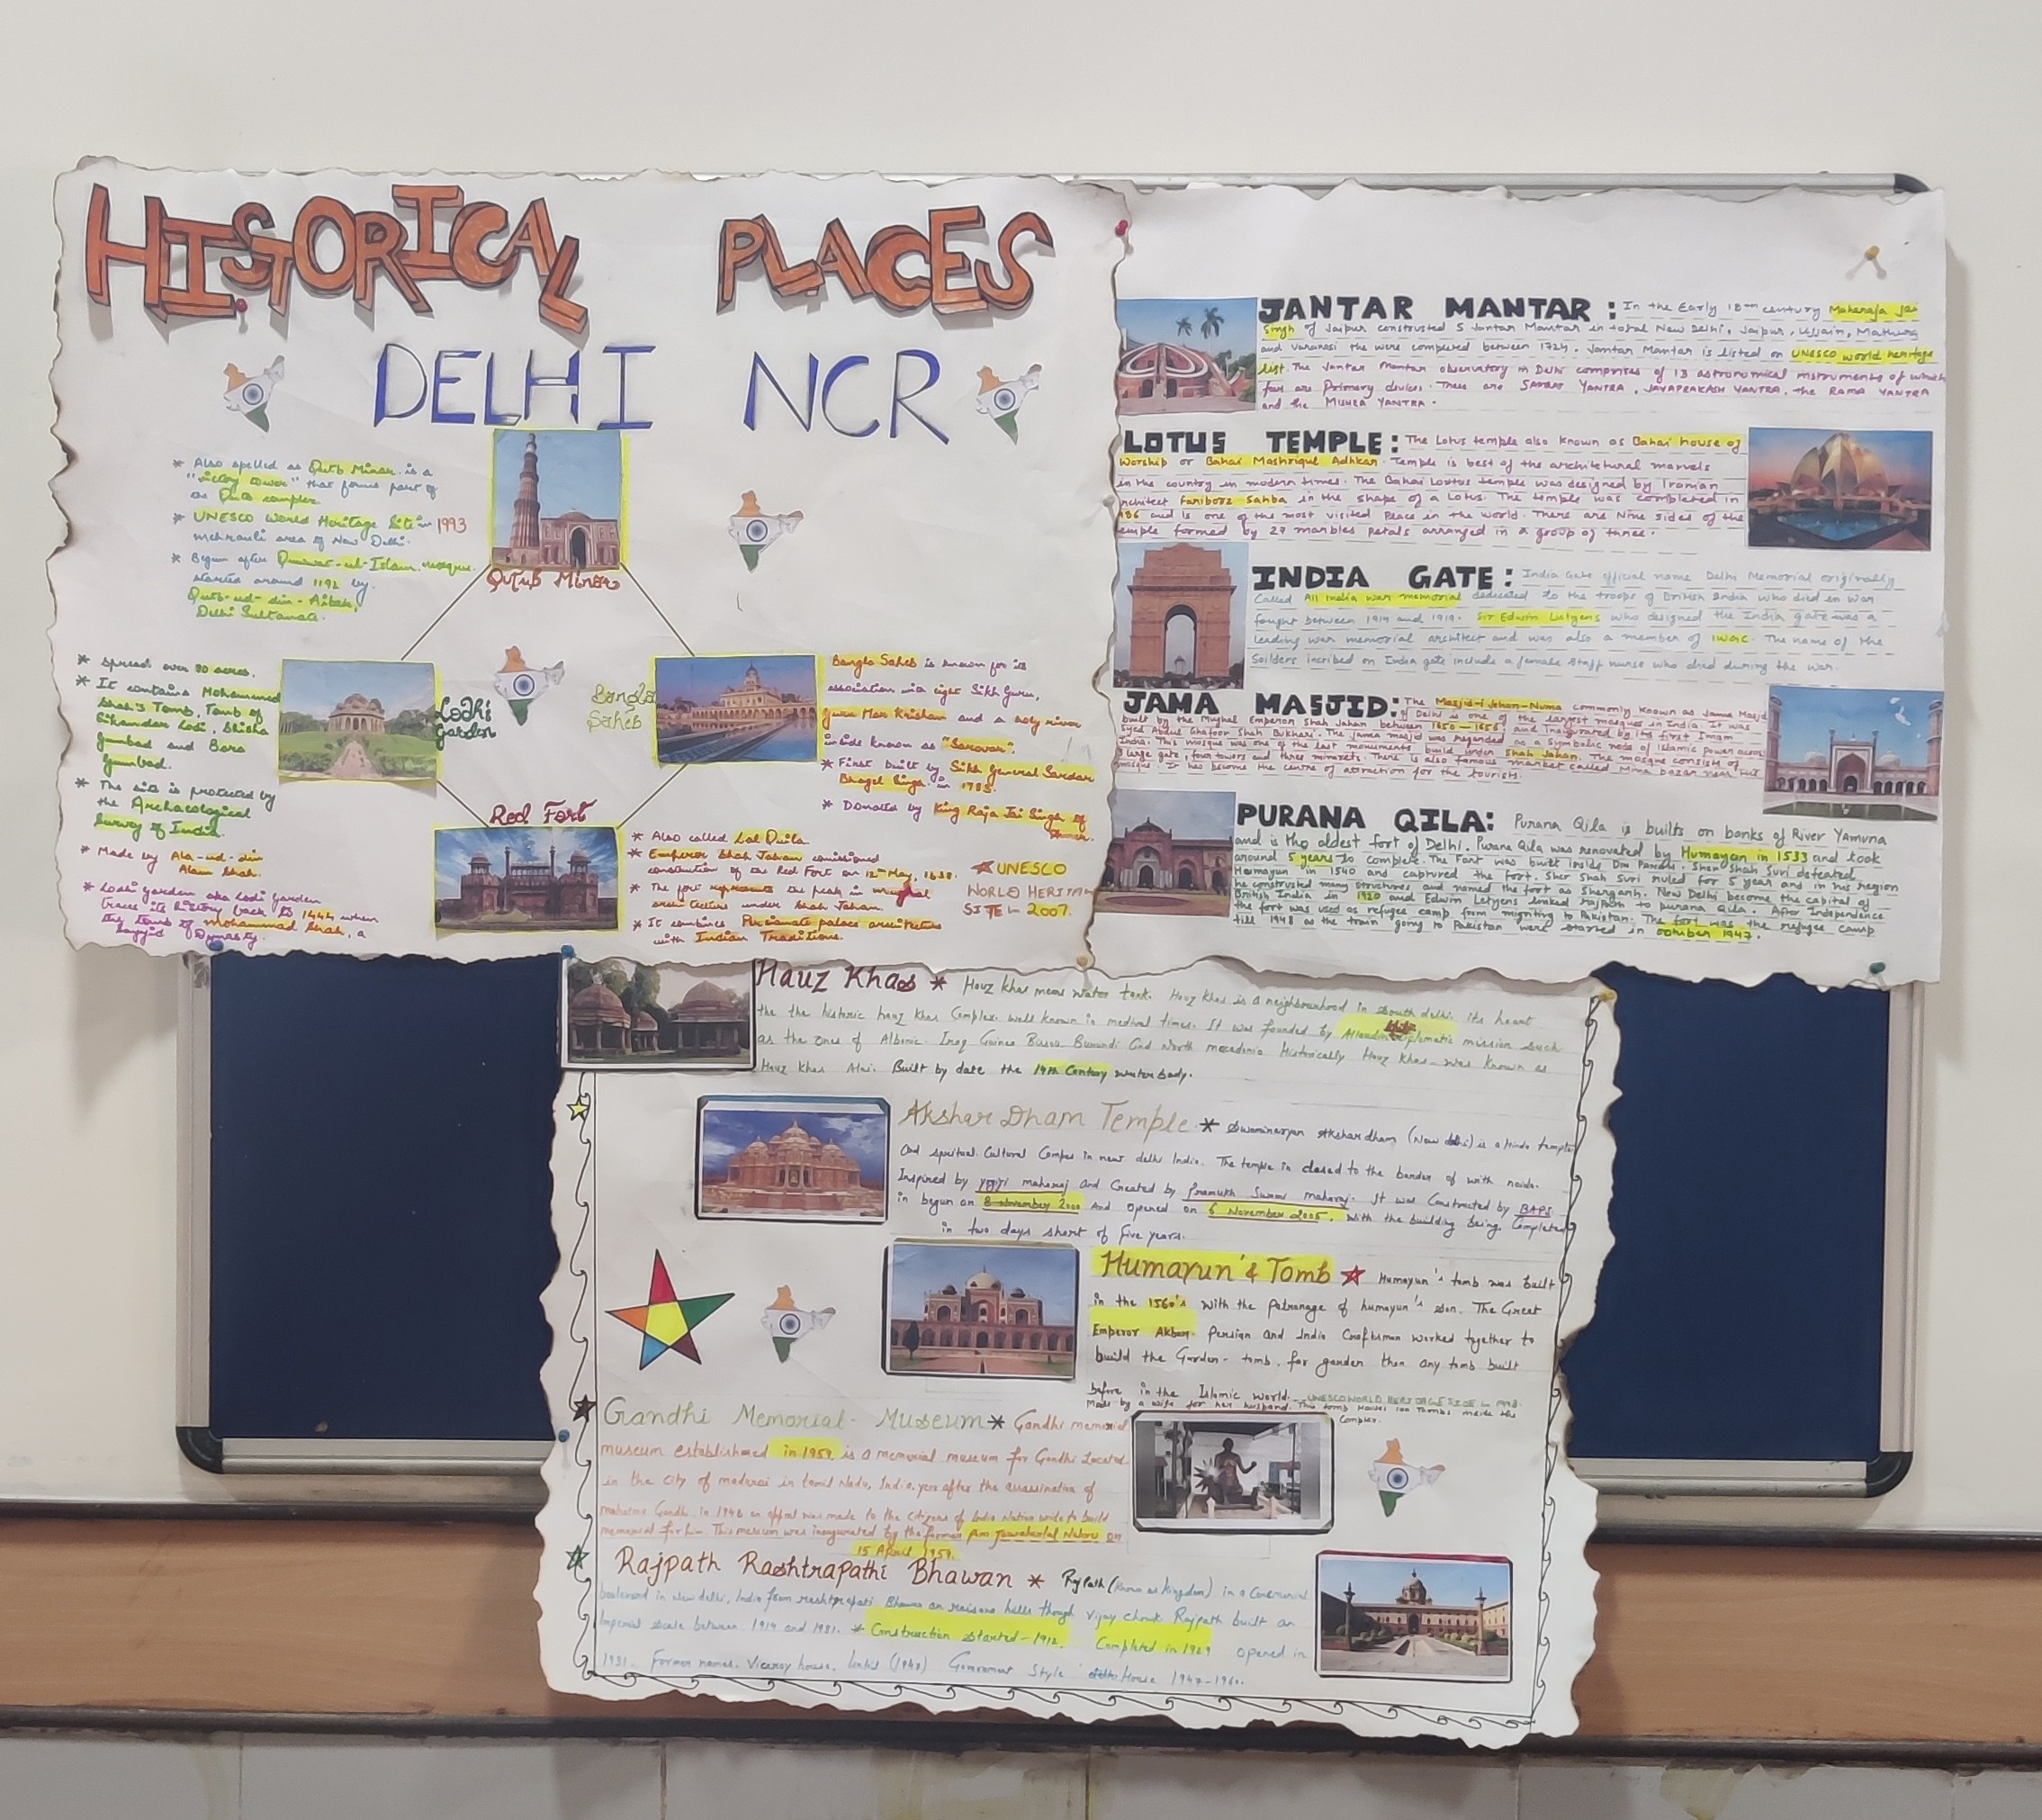 HISTORICAL PLACES
DELHI NCR
* Also spelled as Qutb Minar is a
"victory tower" that forms part of
a Qutb complex
* UNESCO World Heritage Site in 1993
mehrauli area of New Delhi.
* Begun after Quwwat-ul-Islam mosque,
started around 1192 by
Qutb-ud-din-Aibak,
Delhi Sultanate.
Qutub Minar
* Spread over 90 acres.
* It contains Mohammed
Shah's Tomb, Tomb of
Sikandar Lodi, Shisha
Gumbad and Bara
Gumbad.
* The site is protected by
the Archaeological
Survey of India.
* Made by Ala-ud-din
Alam Shah.
* Lodhi garden aka Lodi Garden
traces its history back to 1444 when
the tomb of Mohammad Shah, a
Sayyid Dynasty.
Lodhi
Garden
Bangla
Saheb
Bangla Saheb is known for its
association with eight Sikh Guru,
Guru Har Krishan and a holy river
inside known as "Sarovar".
* First built by Sikh General Sardar
Bhagel Singh in 1783.
* Donated by King Raja Jai Singh of
Amer.
Red Fort
* Also called Lal Quila
* Emperor Shah Jahan
construction of the Red Fort on 12th May, 1638.
* The fort represents the peak in mughal
architecture under Shah Jahan.
* It combines Persianate palace architecture
with Indian Traditions.
UNESCO
WORLD HERITAGE
SITE in 2007.
JANTAR MANTAR: In the Early 18th century Maharaja Jai
Singh of Jaipur constructed 5 Jantar Mantar in total New Delhi, Jaipur, Ujjain, Mathura
and Varanasi the were completed between 1724. Jantar Mantar is listed on UNESCO world heritage
list. The Jantar Mantar observatory in Delhi comprises of 13 astronomical instruments of which
four are Primary devices. There are SAMRAT YANTRA, JAYAPRAKASH YANTRA, the RAMA YANTRA
and the MISHRA YANTRA.
LOTUS TEMPLE: The Lotus temple also known as Bahai house of
Worship or Bahai Mashriqul Adhkar. Temple is best of the architetural marvels
in the country in modern times. The Bahai Loutus temple was designed by Iranian
rchitect Fariborz Sahba in the shape of a Lotus. The temple was completed in
986 and is one of the most visited Place in the world. There are Nine sides of the
temple formed by 27 marbles petals arranged in a group of three.
INDIA GATE: India Gate official name Delhi Memorial originally
Called All India war memorial dedicated to the troops of British India who died in war
fought between 1914 and 1919. Sir Edwin Lutyens who designed the India gate was a
leading war memorial architect and was also a member of IWGC. The name of the
Soilders incribed on India gate include a female staff nurse who died during the war.
JAMA MASJID: The Masjid-i Jehan-Numa commonly known as Jama Masjid
of Delhi is one of the largest mosques in India. It was
built by the Mughal Emperor Shah Jahan between 1650-1656 and Inaugurated by its first Imam
Syed Abdul Ghafoor Shah Bukhari. The Jama masjid was regarded as a Symbolic node of Islamic power across
India. This mosque was one of the last monuments build under Shah Jahan. The mosque consists of
3 large gate, four towers and three minarets. There is also famous market called Mina bazar near
mosque. It has become the centre of attraction for the tourists.
PURANA QILA: Purana Qila is builts on banks of River Yamuna
and is the oldest fort of Delhi. Purana Qila was renovated by Humayun in 1533 and took
around 5 years to complete. The Fort was built inside Din Panah. Sher Shah Suri defeated
Humayun in 1540 and captured the fort. Sher Shah Suri ruled for 5 year and in his region
he constructed many structures and named the fort as Shergarh. New Delhi become the capital of
British India in 1920 and Edwin Letyens linked rajpath to purana Qila. After Independence
the fort was used as refugee camp from migriting to Pakistan. The fort was the refugee camp
till 1948 as the train going to Pakistan were started in october 1947.
Hauz Khas * Hauz Khas means water tank. Hauz Khas is a neighbourhood in South delhi, its heart
the the historic hauz Khas Complex. well known in medival times. It was founded by Allaudin diplomatic mission such
as the ones of Albania. Iraq Guinea Bissau Burundi and North macedonia Historically Hauz Khas was known as
Hauz Khas Alai. Built by date the 14th Century water body.
Akshar Dham Temple * Swaminarayan Akshardham (New delhi) is a hindu temple
and spritual. Cultural Campus in new delhi India. The temple in closed to the border of with noida.
Inspired by yogiji maharaj and Created by Pramukh Swami maharaj. It was Constructed by BAPS
in begun on 8 November 2000 and opened on 6 November 2005, With the building being Completed
in two days short of five years.
Humayun's Tomb Humayun's tomb was built
in the 1560's with the Patronage of humayun's son. The Great
Emperor Akbar. Persian and India Craftsman worked together to
build the Garden-tomb, for gander than any tomb built
before in the Islamic World. UNESCO WORLD HERITAGE SIDE in 1993.
Made by a wife for her husband. This tomb Houses 100 Tombs inside the
Complex.
Gandhi Memorial Museum * Gandhi memorial
museum established in 1959, is a memorial museum for Gandhi Located
in the city of madurai in tamil Nadu, India. year after the assassination of
mahatma Gandhi in 1948 an appeal was made to the citizens of India Nation wide to build
memorial for him. This museum was inaugurated by the former pm Jawaharlal Nehru on
15 April 1959.
Rajpath Rashtrapathi Bhawan * Rajpath (known as kingdom) in a Ceremonial
boulevard in New delhi, India from rashtrapati Bhawan on raisana hills though Vijay chowk. Rajpath built an
Imperial scale between 1914 and 1931. * Construction Started-1912, Completed in 1929 opened in
1931. Former names, Viceroy house, (1947) Government Style House 1947-1960.